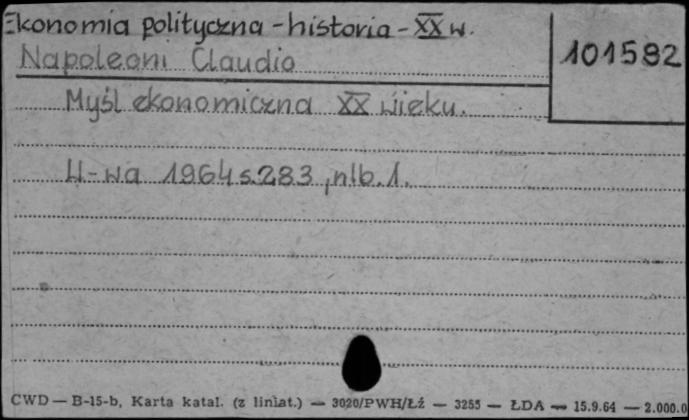 Ekonomia polityczna - historia - XX w.
Napoleoni Claudio
101582
Myśl ekonomiczna XX wieku.
W-wa 1964 s.283, nlb.1.
CWD — B-15-b, Karta katal. (z liniat.) — 3020/PWH/Łź — 3255 — ŁDA — 15.9.64 — 2.000.0